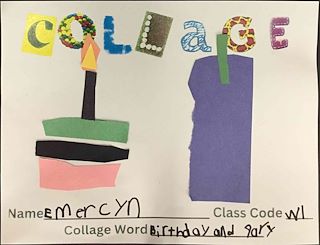 COLLAGE
Name Emercyn Class Code W1
Collage Word Birthday and gary